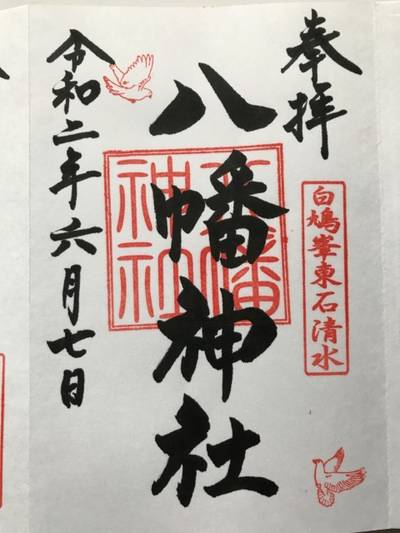 奉拝
白鳩峯東石清水
八幡神社
八幡神社
令和二年六月七日